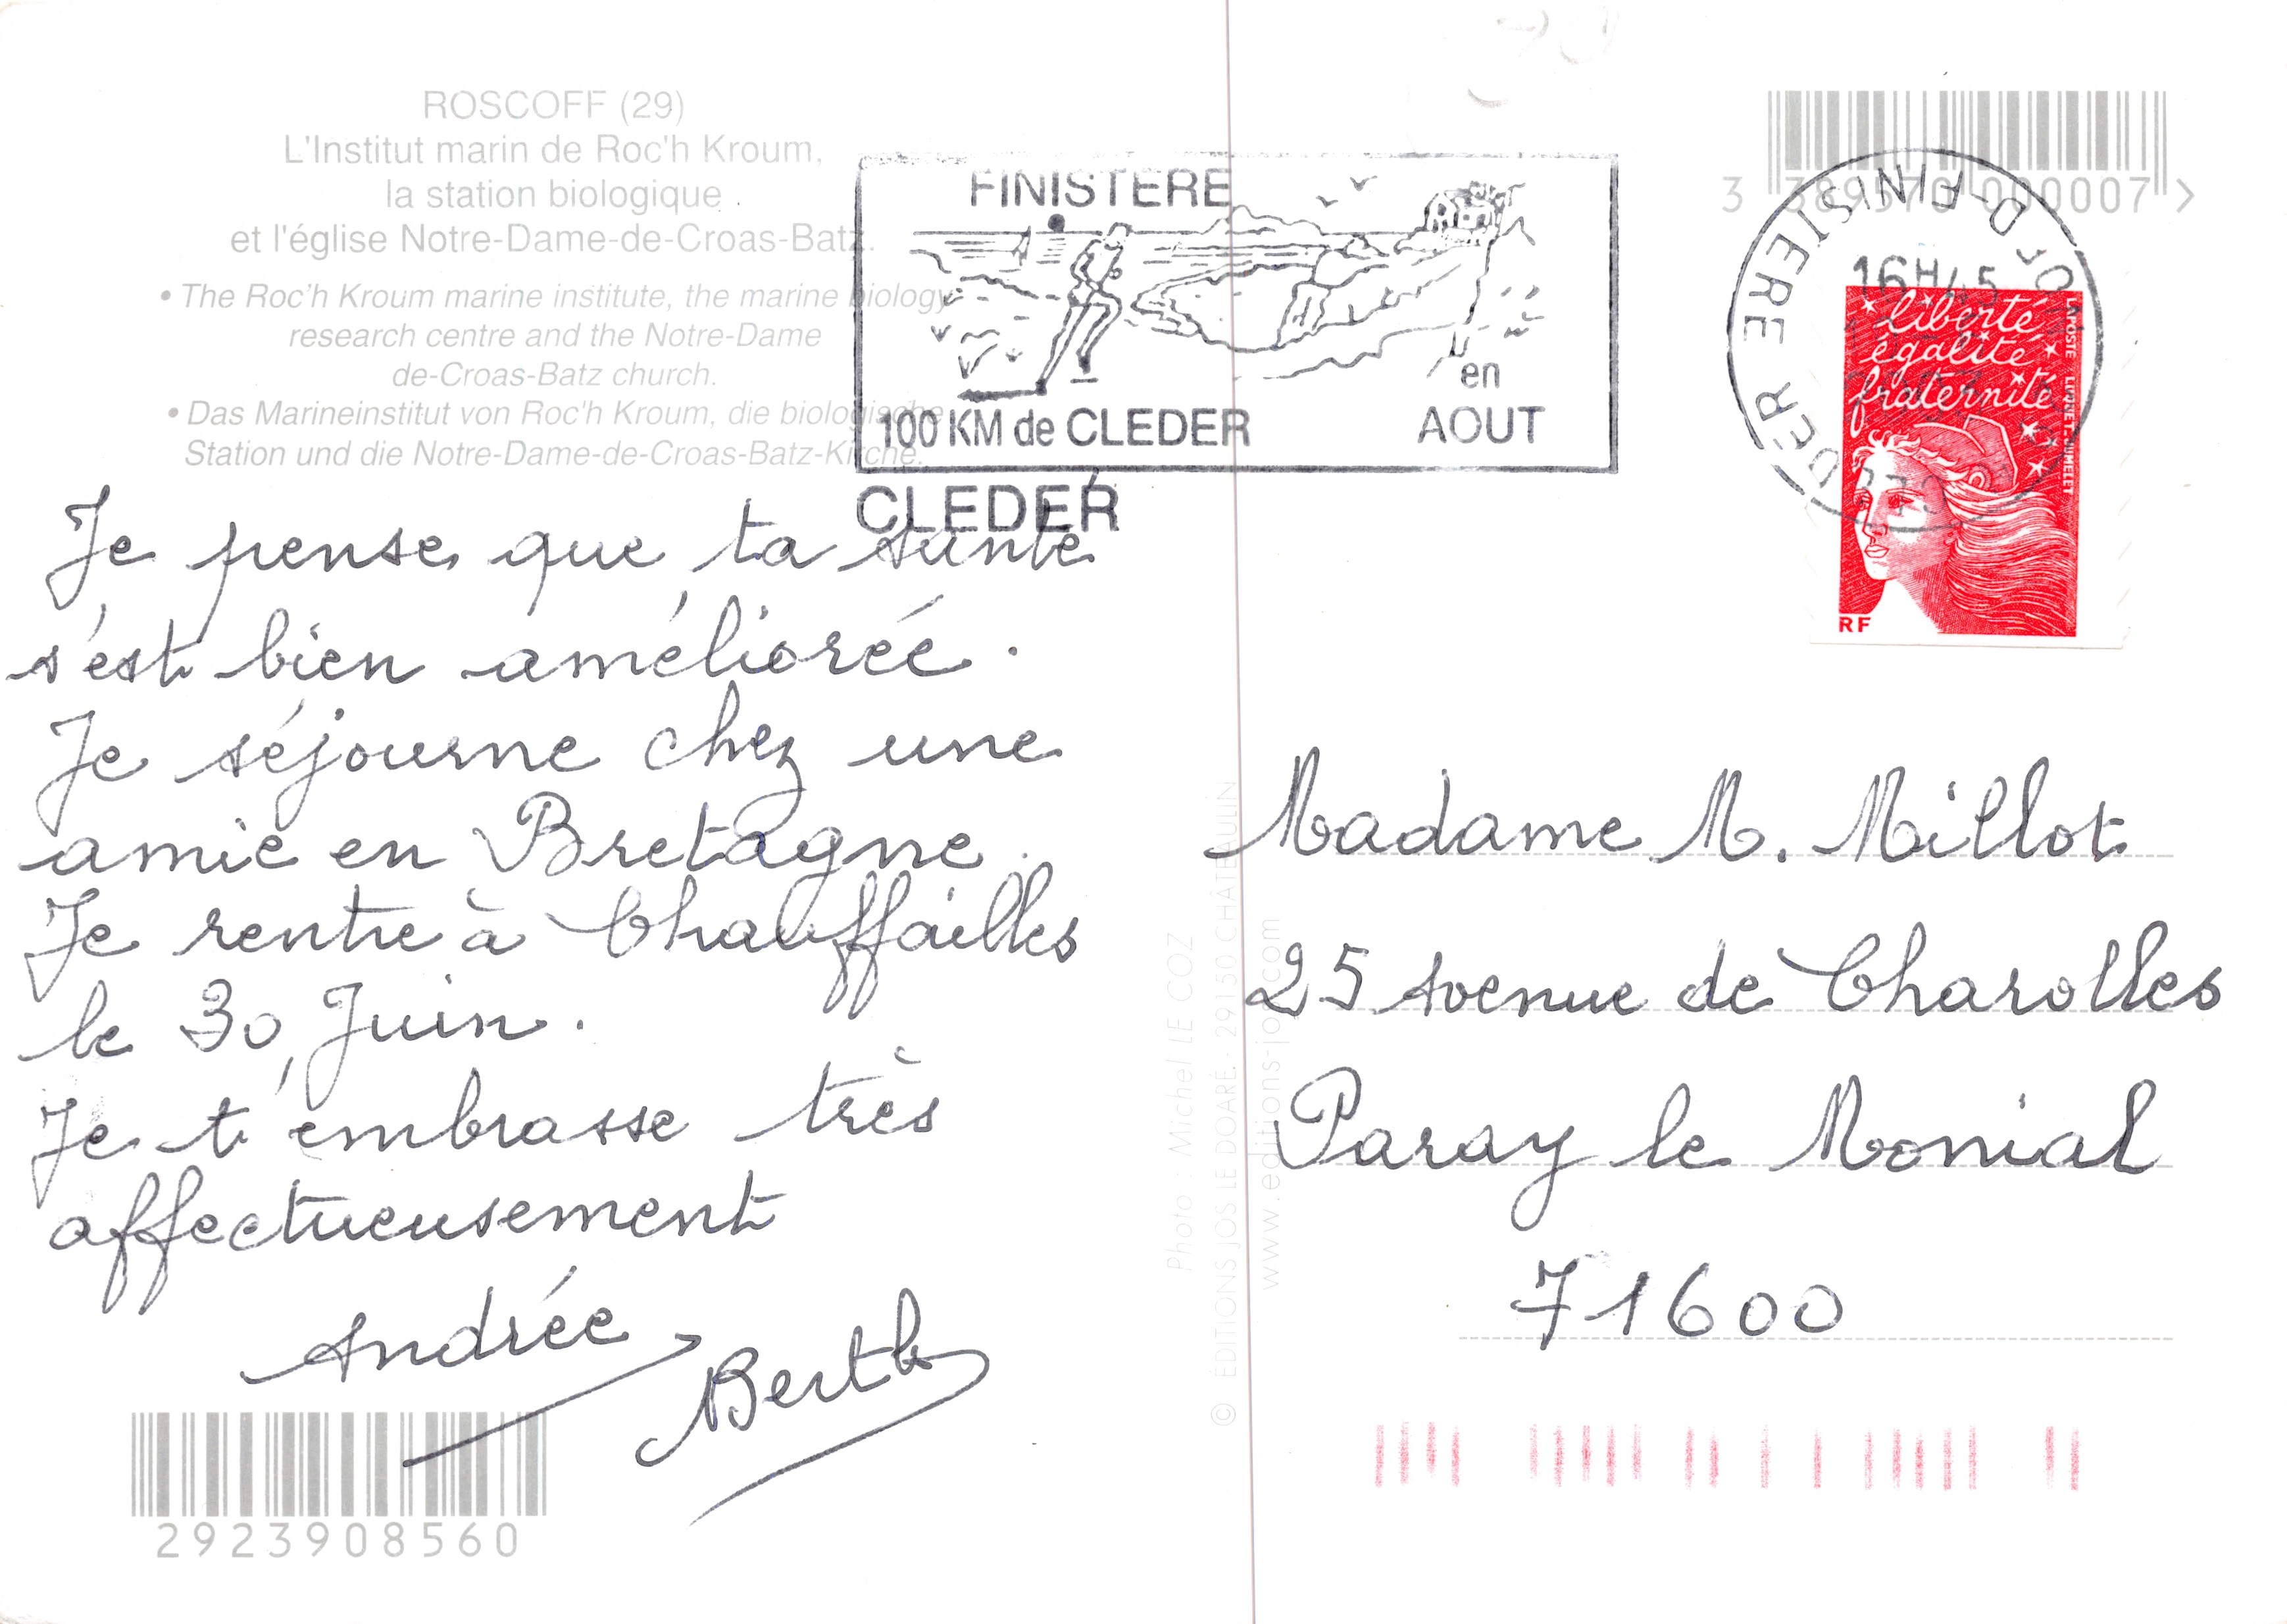 ROSCOFF (29)
L'Institut marin de Roc'h Kroum,
la station biologique
et l'église Notre-Dame-de-Croas-Batz.
• The Roc'h Kroum marine institute, the marine biology
research centre and the Notre-Dame
de-Croas-Batz church.
• Das Marineinstitut von Roc'h Kroum, die biologische
Station und die Notre-Dame-de-Croas-Batz-Kirche.
FINISTERE
100 KM de CLEDER
en
AOUT
CLEDER
Je pense que ta santé
s'est bien améliorée.
Je séjourne chez une
amie en Bretagne.
Je rentre à Chauffailles
le 30 Juin.
Je t'embrasse très
affectueusement
Andrée
Berth
2923908560
Photo : Michel LE COZ
© EDITIONS JOS LE DOARÉ - 29150 CHÂTEAULIN
www.editions-jos.com
3 389570 000007 >
FINISTERE
16H45
liberté
égalité
fraternité
LA POSTE
RF
Madame M. Millot
25 Avenue de Charolles
Paray le Monial
71600